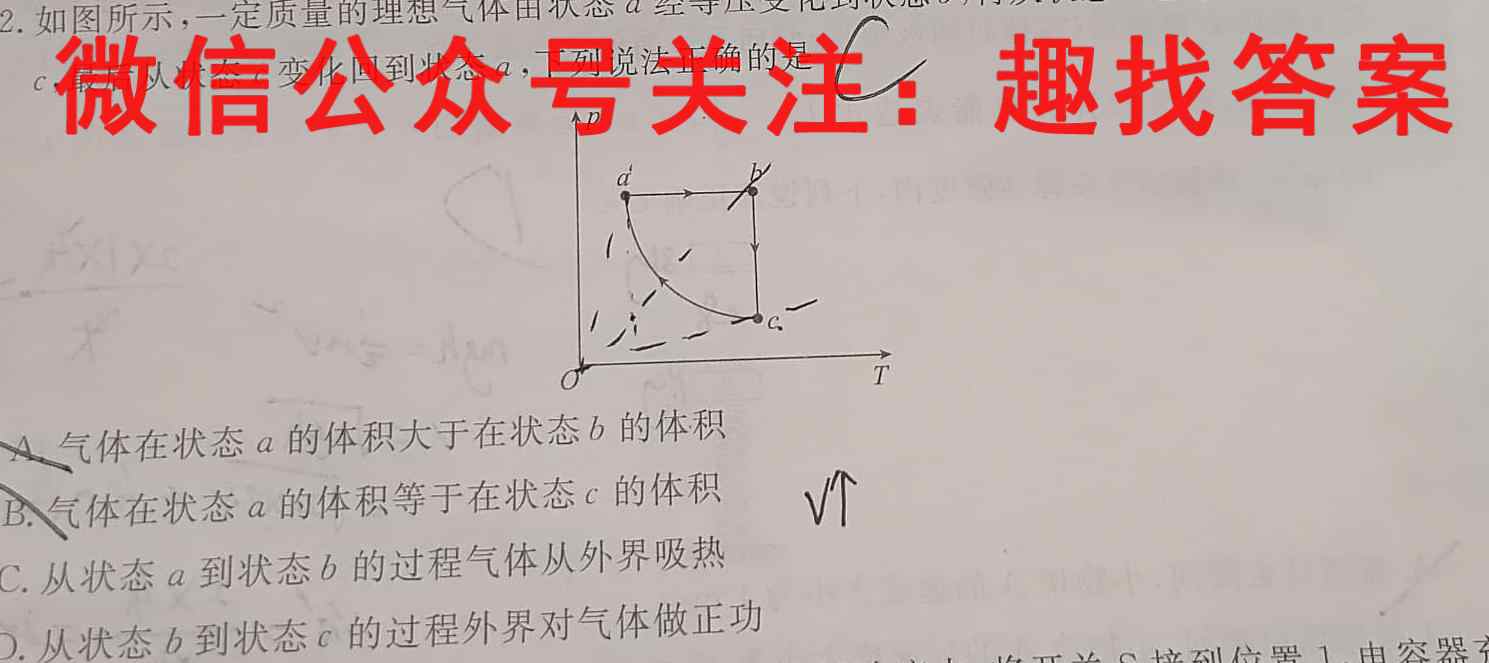 2. 如图所示,一定质量的理想气体由状态 a 经等压变化到状态 b,
c,最后从状态 c 变化回到状态 a,下列说法正确的是 C
微信公众号关注:趣找答案
p
a
b
c
O
T
A. 气体在状态 a 的体积大于在状态 b 的体积
B. 气体在状态 a 的体积等于在状态 c 的体积
V↑
C. 从状态 a 到状态 b 的过程气体从外界吸热
D. 从状态 b 到状态 c 的过程外界对气体做正功
将开关 S 接到位置 1,电容器充